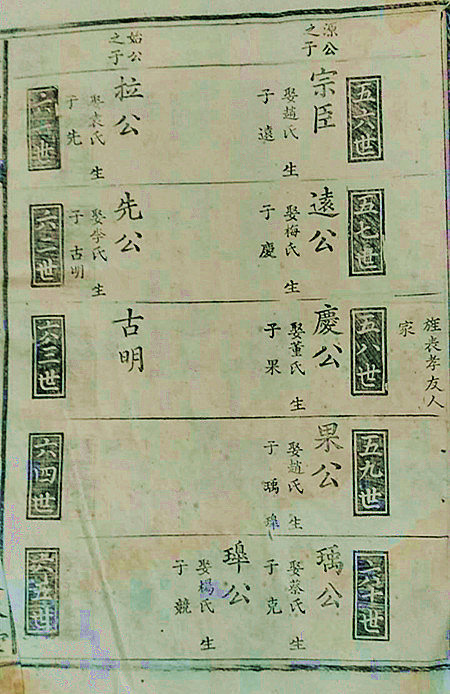 五六世
源公之子
宗臣
娶趙氏 生
子 遠
五七世
遠公
娶梅氏 生
子 慶
旌表孝友人家
五八世
慶公
娶董氏 生
子 果
五九世
果公
娶趙氏 生
子 瑀 瑋
六十世
瑀公
娶蔡氏 生
子 克
娶楊氏 生
子 競
始公之子
拉公
娶袁氏 生
子 先
先公
娶李氏 生
子 古明
六三世
古明
六四世
六五世